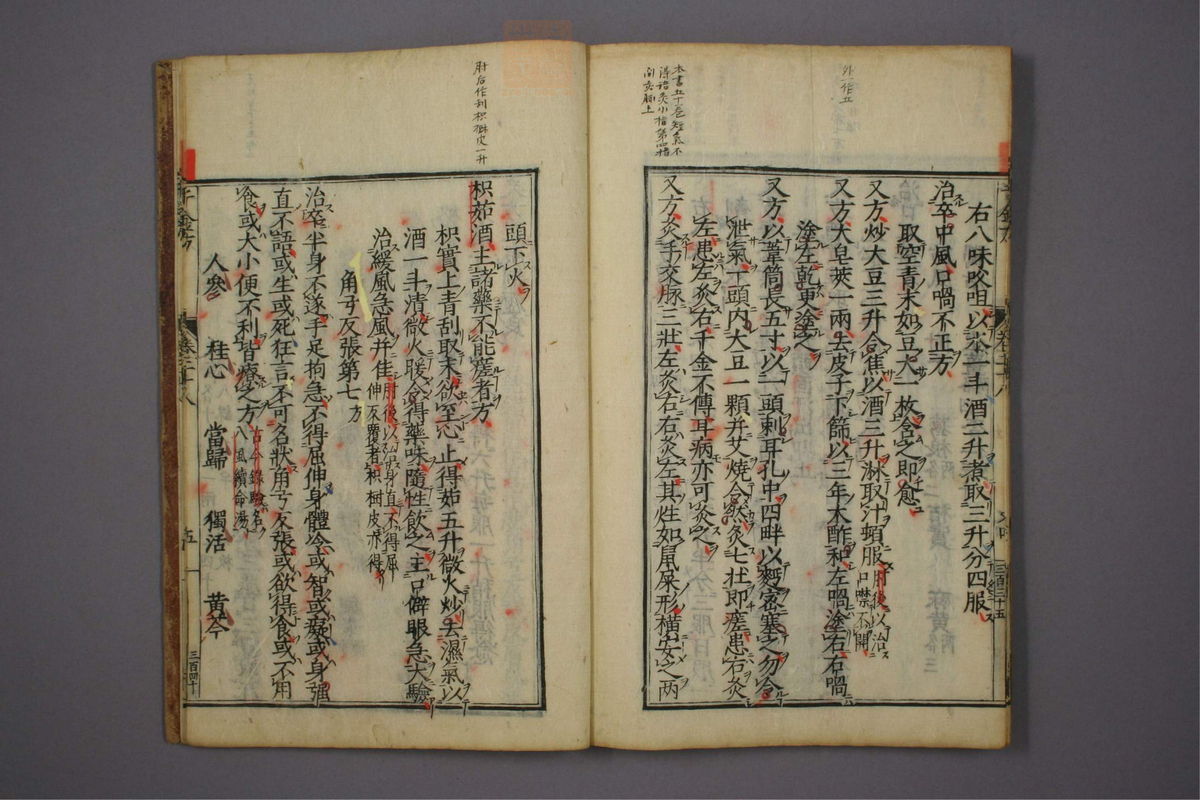 外一作五
本書五十巻短氣不
得語灸小指第四指
右八味㕮咀以水一斗酒三升煮取三升分四服
治卒中風口喎不正方
取空青末如豆大一枚含之即愈
又方炒大豆三升令焦以酒三升淋取汁頓服肘後以治口噤不開
又方大皁莢一兩去皮子下篩以三年大酢和左喎塗右右喎
塗左乾更塗之
又方以葦筒長五寸以一頭刺耳孔中四畔以麪密塞之勿令
泄氣一頭内大豆一顆并艾燒令然灸七壯即瘥患右灸
左患左灸右千金不傳耳病亦可灸之
又方灸手交脉三壯左灸右右灸左其炷如鼠屎形橫安之两
頭下火
肘后作刮枳樹皮一升
枳茹酒主諸藥不能瘥者方
枳實上青刮取末欲至心止得茹五升微火炒去濕氣以
酒一斗漬微火暖令得藥味隨性飲之主口僻眼急大驗
治緩風急風并佳肘後以治身直不得屈伸反覆者枳樹皮亦得
角弓反張第七方
治卒半身不遂手足拘急不得屈伸身體冷或智或癡或身強
直不語或生或死狂言不可名狀角弓反張或欲得食或不用
食或大小便不利皆療之方古今錄驗名八風續命湯
人參 桂心 當歸 獨活 黃芩
千金方
五
三百四十